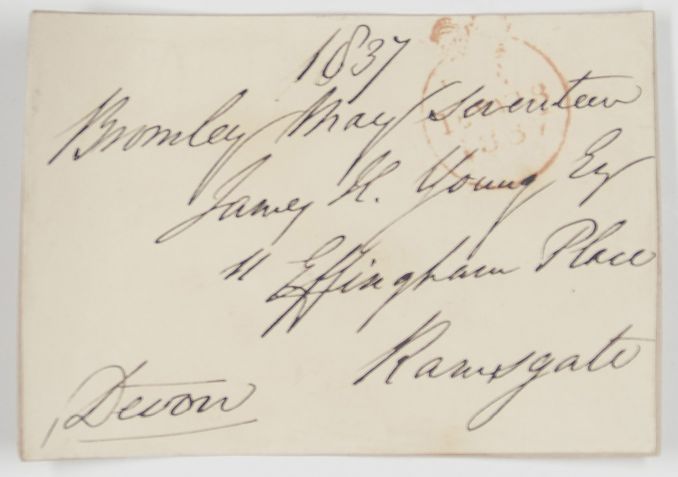 1837
Bromley May seventeen
James H. Young Esq
11 Effingham Place
Ramsgate
Devon
1837